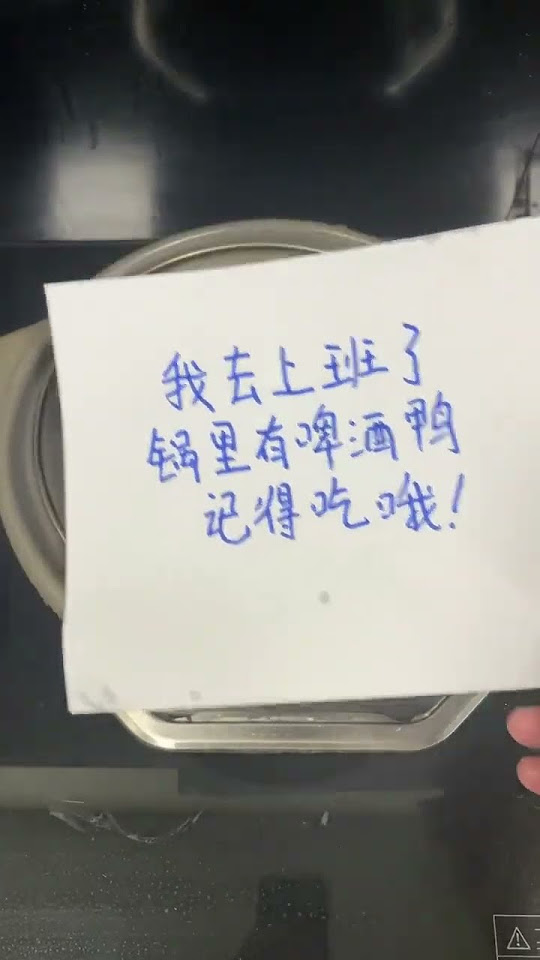 我去上班了
锅里有啤酒鸭
记得吃哦!